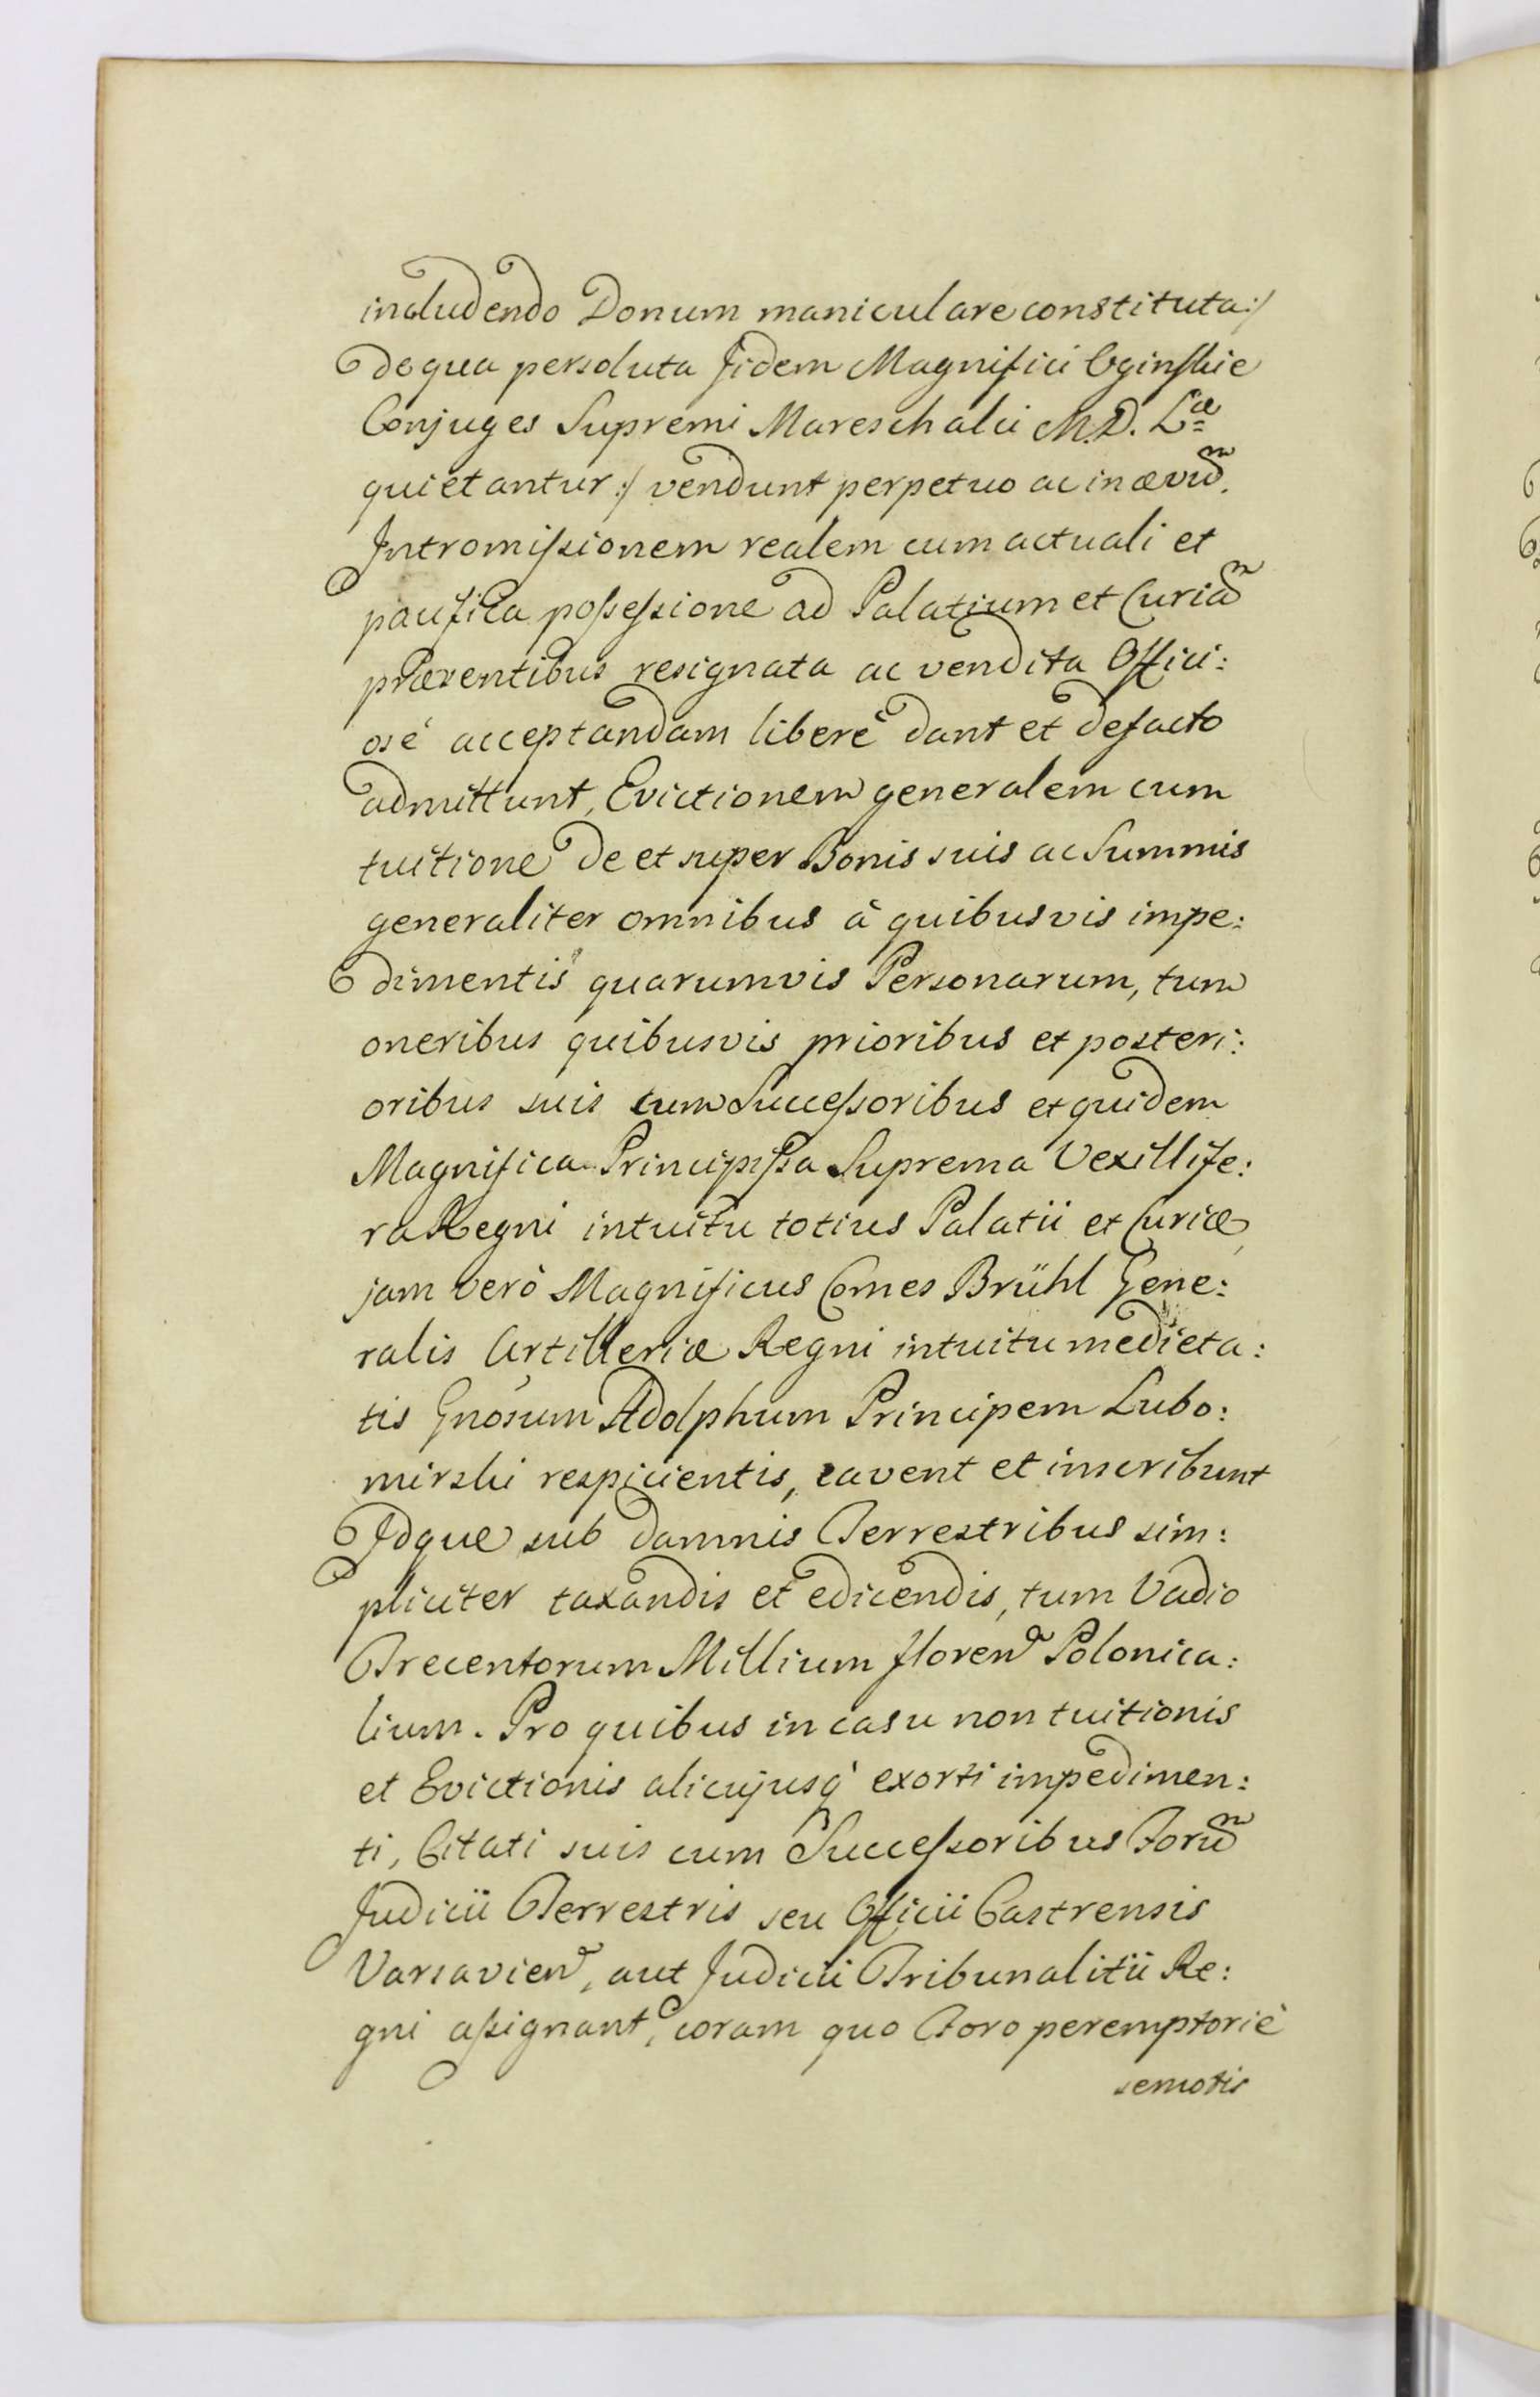 includendo Donum maniculare constituta:/
de qua persoluta Iidem Magnifici Oginskie
Conjuges Supremi Mareschalci M.D. L^ae
quietantur:/ vendunt perpetuo ac in ævu^m.
Intromissionem realem cum actuali et
pacifica possessione ad Palatium et Curia^m
præsentibus resignata ac vendita Offici:
osé acceptandam liberé dant et defacto
admittunt, Evictionem generalem cum
tuitione de et super Bonis suis ac Summis
generaliter omnibus à quibusvis impe:
dimentis quarumvis Personarum, tum
oneribus quibusvis prioribus et posteri:
oribus suis cum Successoribus et quidem
Magnifica Principissa Suprema Vexillife:
ra Regni intuitu totius Palatii et Curiæ,
jam verò Magnificus Comes Brühl Gene:
ralis Artilleriæ Regni intuitu medieta:
tis Gnosum Adolphum Principem Lubo:
mirski respicientis, cavent et inscribunt
Idque sub damnis Terrestribus sim:
pliciter taxandis et edicendis, tum Vadio
Trecentorum Millium floren Polonica:
lium. Pro quibus in casu non tuitionis
et Evictionis alicujusq exorti impedimen:
ti, Citati suis cum Successoribus Foru^m
Judicii Terrestris seu Officii Castrensis
Varsavien, aut Judicii Tribunalitii Re:
gni assignant, coram quo Foro peremptoriè
semotis